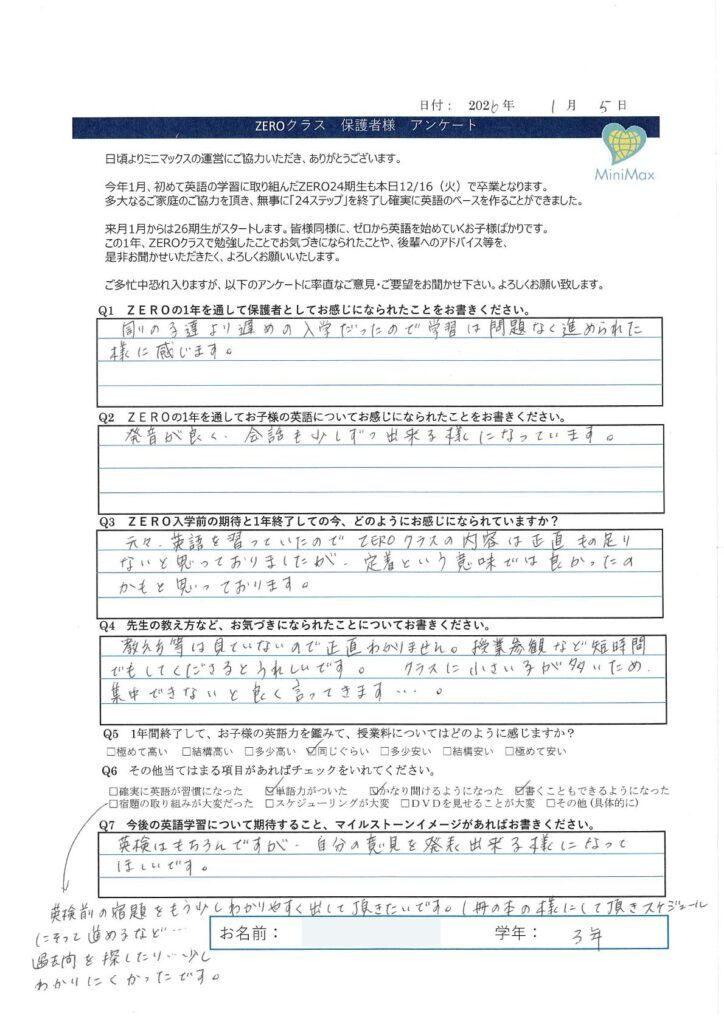 日付： 2026年 1月 5日
ZEROクラス 保護者様 アンケート
MiniMax
日頃よりミニマックスの運営にご協力いただき、ありがとうございます。
今年1月、初めて英語の学習に取り組んだZERO24期生も本日12/16（火）で卒業となります。
多大なるご家庭のご協力を頂き、無事に「24ステップ」を終了し確実に英語のベースを作ることができました。
来月1月からは26期生がスタートします。皆様同様に、ゼロから英語を始めていくお子様ばかりです。
この1年、ZEROクラスで勉強したことでお気づきになられたことや、後輩へのアドバイス等を、
是非お聞かせいただきたく、よろしくお願いいたします。
ご多忙中恐れ入りますが、以下のアンケートに率直なご意見・ご要望をお聞かせ下さい。よろしくお願い致します。
Q1 ZEROの1年を通して保護者としてお感じになられたことをお書きください。
周りの子達より遅めの入学だったので学習は問題なく進められた
様に感じます。
Q2 ZEROの1年を通してお子様の英語についてお感じになられたことをお書きください。
発音が良く、会話も少しずつ出来る様になっています。
Q3 ZERO入学前の期待と1年終了しての今、どのようにお感じになられていますか？
元々、英語を習っていたのでZEROクラスの内容は正直もの足り
ないと思っておりましたが、定着という意味では良かったの
かもと思っております。
Q4 先生の教え方など、お気づきになられたことについてお書きください。
教え方等は見ていないので正直わかりません。授業参観など短時間
でもしてくださるとうれしいです。 クラスに小さい子が多いため、
集中できないと良く言ってきます…。
Q5 1年間終了して、お子様の英語力を鑑みて、授業料についてはどのように感じますか？
□極めて高い □結構高い □多少高い ☑同じぐらい □多少安い □結構安い □極めて安い
Q6 その他当てはまる項目があればチェックをいれてください。
□確実に英語が習慣になった ☑単語力がついた ☑かなり聞けるようになった ☑書くこともできるようになった
□宿題の取り組みが大変だった □スケジューリングが大変 □DVDを見せることが大変 □その他（具体的に）
Q7 今後の英語学習について期待すること、マイルストーンイメージがあればお書きください。
英検はもちろんですが、自分の意見を発表出来る様になって
ほしいです。
英検前の宿題をもう少しわかりやすく出して頂きたいです。1冊の本の様にして頂きスケジュール
にそって進めるなど…
過去問を探したり…少し
わかりにくかったです。
お名前： 学年： 3年